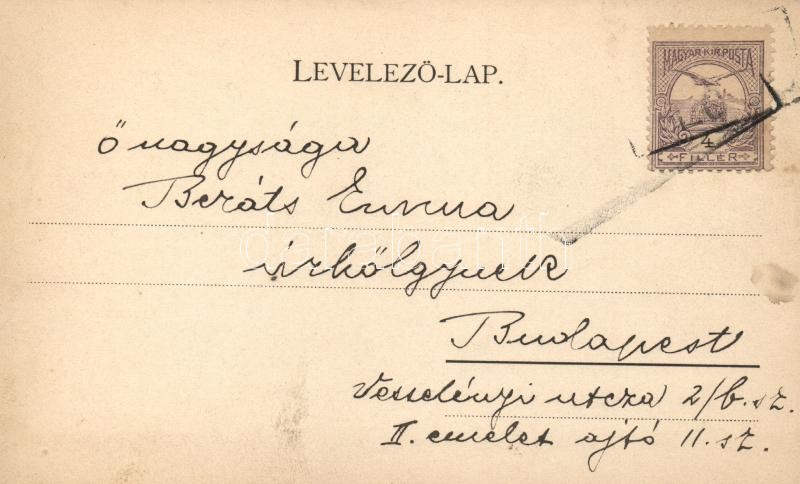 MAGYAR KIR. POSTA
4
FILLÉR
LEVELEZÖ-LAP.
ő nagysága
Beráts Emma
úrhölgynek
Budapest
Vesselényi utcza 2/b. sz.
II. emelet ajtó 11. sz.
darabanth